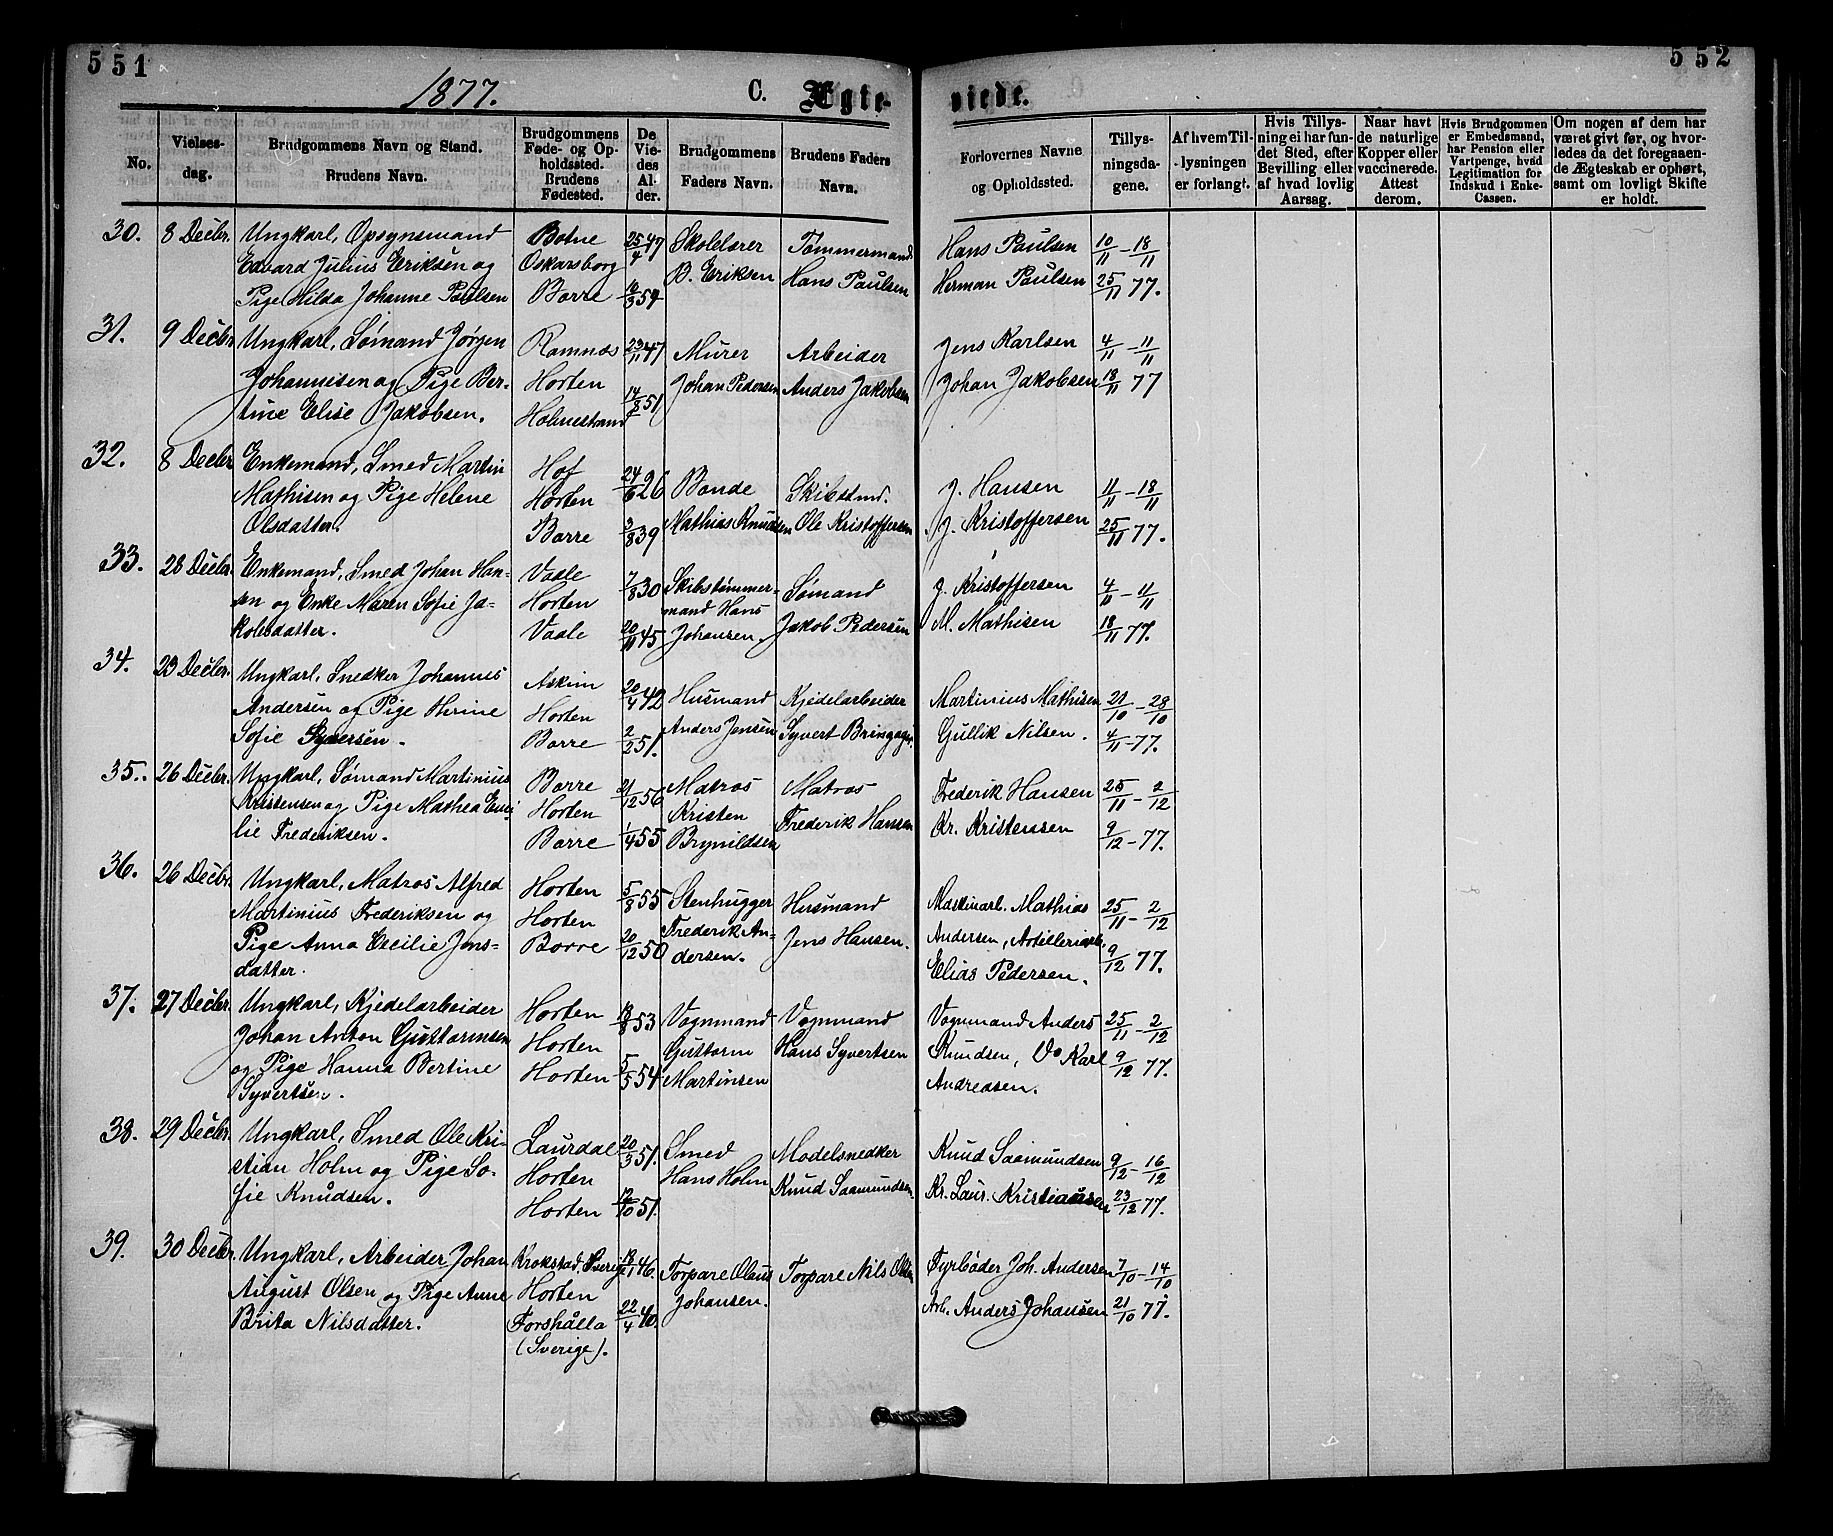 551
552
1877.
C. Ægte-
viede.
No.
Vielses-
dag.
Brudgommens Navn og Stand.
Brudens Navn.
Brudgommens
Føde- og Op-
holdssted.
Brudens
Fødested.
De
Vie-
des
Al-
der.
Brudgommens
Faders Navn.
Brudens Faders
Navn.
Forlovernes Navne
og Opholdssted.
Tillys-
ningsda-
gene.
Af hvem Til-
lysningen
er forlangt.
Hvis Tillys-
ning ei har fun-
det Sted, efter
Bevilling eller
af hvad lovlig
Aarsag.
Naar havt
de naturlige
Kopper eller
vaccinerede.
Attest
derom.
Hvis Brudgommen
er Embedsmand,
har Pension eller
Vartpenge, hvad
Legitimation for
Indskud i Enke-
Cassen.
Om nogen af dem har
været givt før, og hvor-
ledes da det foregaaen-
de Ægteskab er ophørt,
samt om lovligt Skifte
er holdt.
30. 8 Decbr. Ungkarl, Opsynsmand Botne 25/4 47 Skolelærer Tømmermand Hans Paulsen 10/11 - 18/11
Edvard Julius Eriksen og Oskarsborg B. Eriksen Hans Paulsen Herman Paulsen 25/11 77.
Pige Hilda Johanne Paulsen Borre
31. 9 Decbr. Ungkarl, Sømand Jørgen Ramnæs 23/11 47 Murer Arbeider Jens Karlsen 4/11 - 11/11
Johannisen og Pige Ber- Horten Johan Pedersen Anders Jakobsen Johan Jakobsen 18/11 77
tine Elise Jakobsen. Holmestrand 14/8 51
32. 8 Decbr Enkemand, Smed Martin Hof 24/6 26 Bonde Skibstmd. J. Hansen 11/11 - 18/11
Mathisen og Pige Helene Horten Mathias Knudsen Ole Kristoffersen J. Kristoffersen 25/11 77.
Olsdatter. Borre 3/8 39
33. 28 Decbr. Enkemand, Smed Johan Han- Vaale 7/8 30 Skibstømmer- Sømand J. Kristoffersen 4/11 - 11/11
sen og Enke Maren Sofie Ja- Horten mand Hans Jakob Pedersen M. Mathisen 18/11 77.
kobsdatter. Vaale 20/11 45 Johansen.
34. 23 Decbr. Ungkarl, Snedker Johannes Askim 20/4 42 Husmand Kjedelarbeider Martinius Mathisen 21/10 - 28/10
Andersen og Pige Herine Horten Anders Jensen Syvert Gullik Nilsen. 4/11 - 77.
Sofie Syversen. Borre 2/2 51.
35. 26 Decbr. Ungkarl, Sømand Martinius Borre 21/12 56 Matros Matros Frederik Hansen 25/11 - 2/12
Kristensen og Pige Mathea Emi- Horten Kristen Frederik Hansen Kr. Kristensen 9/12 - 77.
lie Frederiksen. Borre 1/4 55 Brynildsen
36. 26 Decbr. Ungkarl, Matros Alfred Horten 5/8 55 Stenhugger Husmand Maskinarb. Mathias 25/11 - 2/12
Martinius Frederiksen og Horten Frederik An- Jens Hansen. Andersen, Artilleriarb.
Pige Anna Cecilie Jens- Borre 20/12 50 dersen. Elias Pedersen. 9/12 77.
datter.
37. 27 Decbr. Ungkarl, Kjedelarbeider Horten 53 Vognmand Vognmand Vognmand Anders 25/11 - 2/12
Johan Anton Guttormsen Horten Guttorm Hans Syvertsen Knudsen, Do Karl 9/12 77.
og Pige Hanna Bertine Horten 5/5 54 Martinsen Andreasen.
Syvertsen.
38. 29 Decbr. Ungkarl, Smed Ole Kri- Laurdal 20/3 51. Smed Modelsnedker Knud Saamundsen 9/12 - 16/12
stian Holm og Pige So- Horten Hans Holm Knud Saamundsen Kr. Laur. Kristiansen 23/12 77.
fie Knudsen. Horten 12/10 51.
39. 30 Decbr. Ungkarl, Arbeider Johan Krokstad, Sverige 18/1 46. Torpare Olaus Torpare Nils Olsen Fyrbøder Joh. Andersen 7/10 - 14/10
August Olsen og Pige Anne Horten Johansen. Arb. Anders Johansen 21/10 77.
Brita Nilsdatter. Forshälla 22/4 40.
(Sverige).